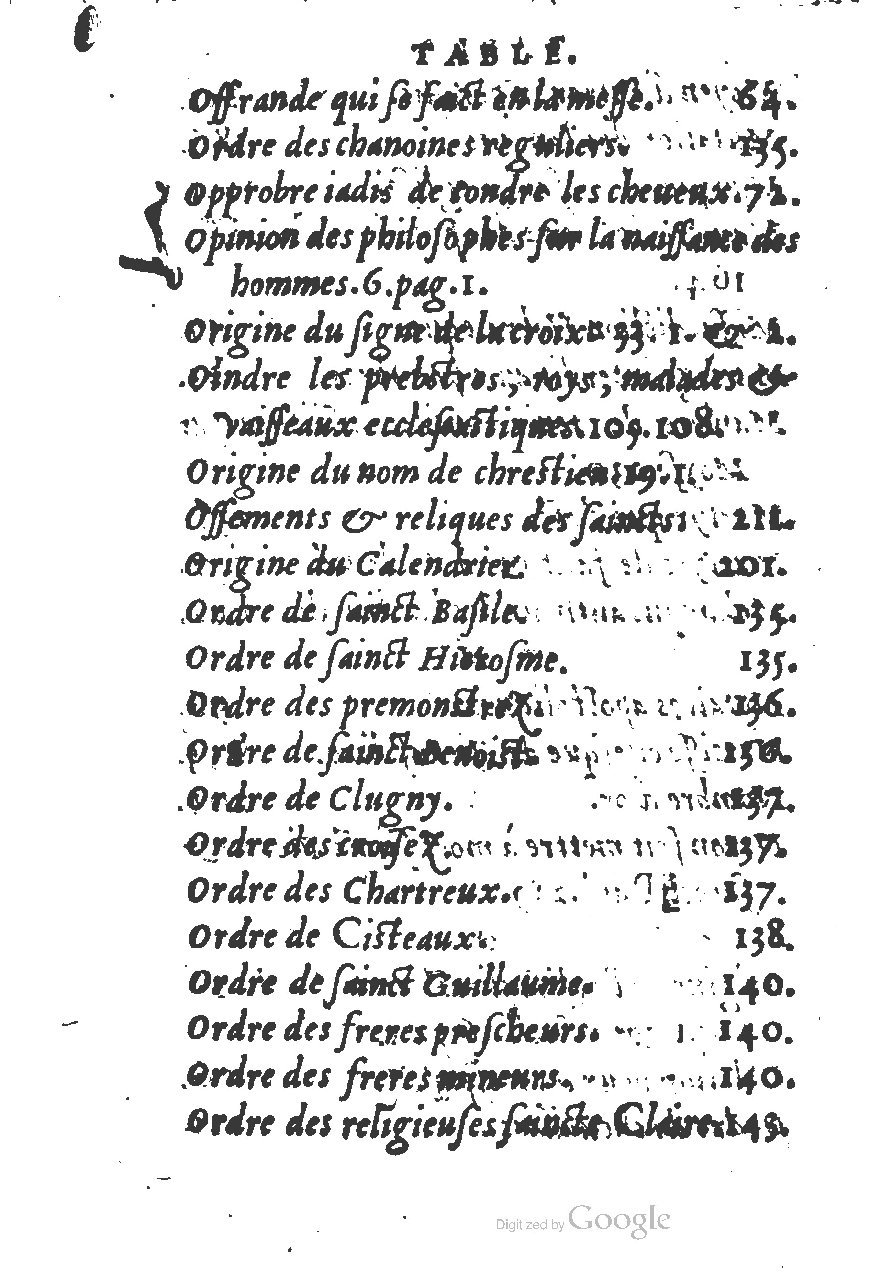 TABLE.
Offrande qui se faict en la messe. 64.
Ordre des chanoines reguliers. 135.
Opprobre iadis de tondre les cheueux. 72.
Opinion des philosophes sur la naissance des
hommes. 6. pag. 1.
Origine du signe de la croix 33. 1. & 2.
Oindre les prebstres, roys, malades &
vaisseaux ecclesiastiques. 109. 108.
Origine du nom de chrestien 119. 1.
Ossements & reliques des saincts 211.
Origine du Calendrier. 201.
Ordre de sainct Basile. 135.
Ordre de sainct Hierosme. 135.
Ordre des premonstrez 136.
Ordre de sainct Benoist. 136.
Ordre de Clugny. 137.
Ordre des croisez. 137.
Ordre des Chartreux. 137.
Ordre de Cisteaux. 138.
Ordre de sainct Guillaume. 140.
Ordre des freres prescheurs. 140.
Ordre des freres mineurs. 140.
Ordre des religieuses saincte Claire.
Digitized by Google